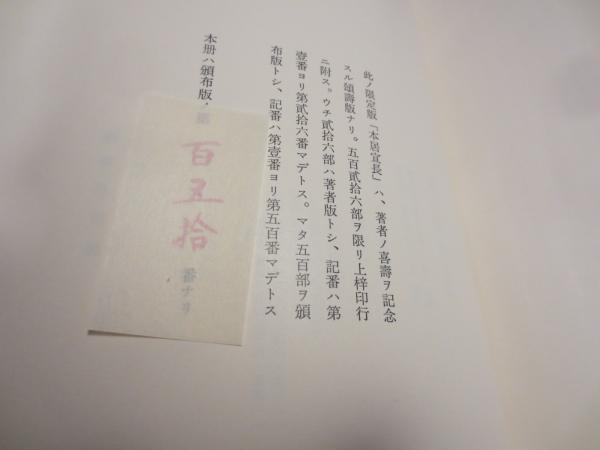 此ノ限定版「本居宣長」ハ、著者ノ喜壽ヲ記念
スル頌壽版ナリ。五百貳拾六部ヲ限リ上梓印行
ニ附ス。ウチ貳拾六部ハ著者版トシ、記番ハ第
壹番ヨリ第貳拾六番マデトス。マタ五百部ヲ頒
布版トシ、記番ハ第壹番ヨリ第五百番マデトス
本册ハ頒布版ノ第 百五拾 番ナリ